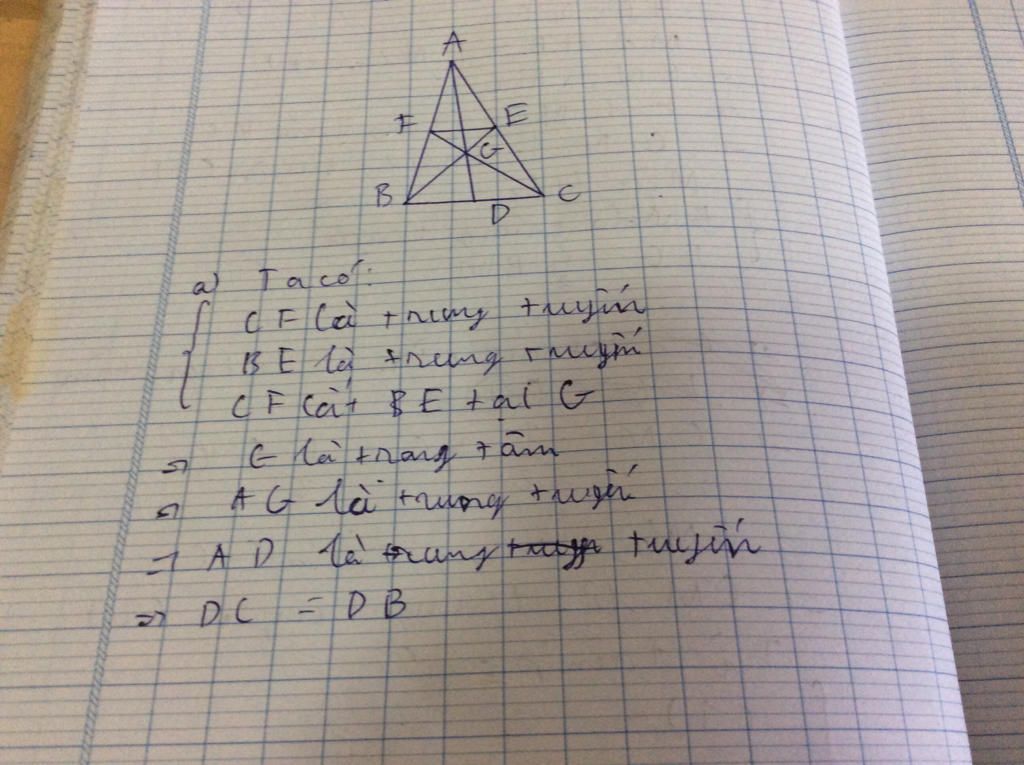 A
F E
G
B C
D
a) Ta có:
CF là trung tuyến
BE là trung tuyến
CF cắt BE tại G
=> G là trọng tâm
=> AG là trung tuyến
=> AD là trung tuyến
=> DC = DB